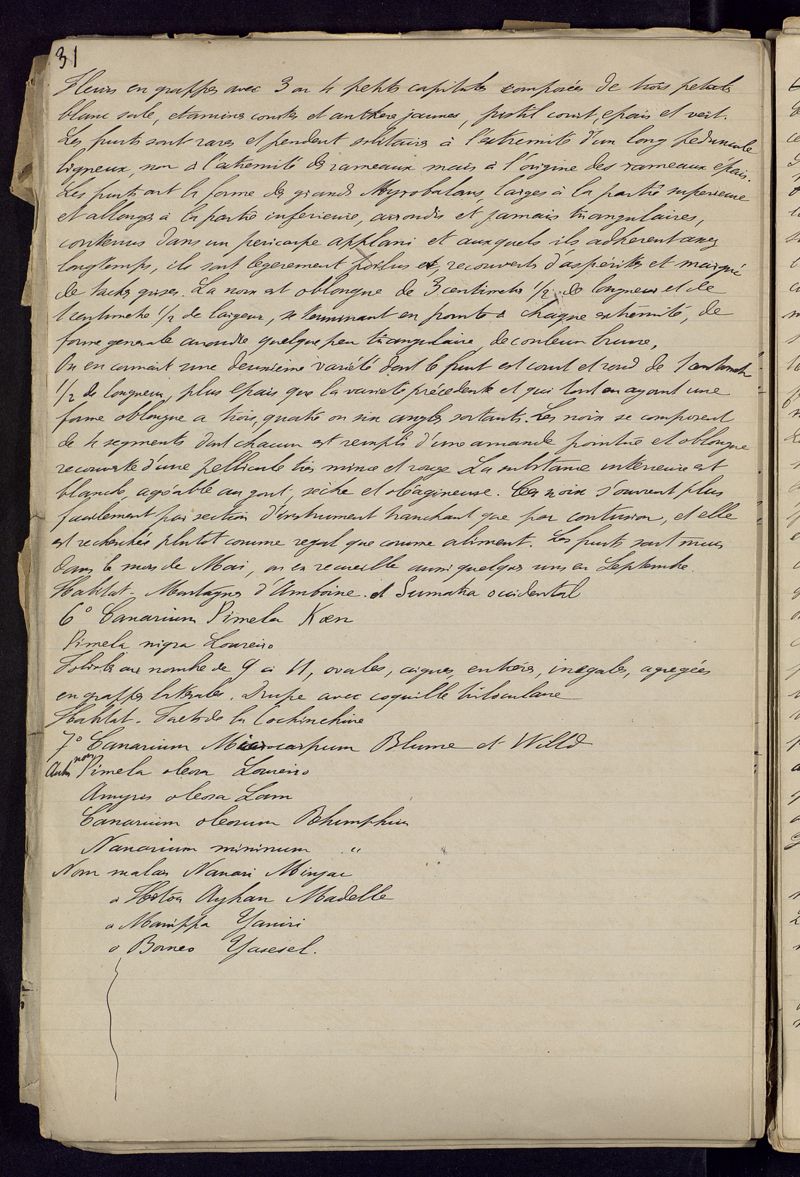 31
Fleurs en grappes avec 3 ou 4 petits capitules composées de trois petales
blanc sale, etamines courtes et anthere jaunes, pistil court, epais et vert.
Les fruits sont rares et pendent solitaires à l'extremité d'un long peduncule
ligneux, non à l'extremité des rameaux mais à l'origine des rameaux epais.
Les fruits ont la forme de grands Myrobalans, larges à la partie superieure
et allongés à la partie inferieure, arrondis et jamais triangulaires,
contenus dans un pericarpe applani et auxquels ils adherent assez
longtemps, ils sont legerement poilus et, recouverts d'aspérites et marqué
de taches grises. La noix est oblongue de 3 centimetre 1/2 de longueur et de
1 centimetre 1/2 de largeur, se terminant en pointe à chaque extrémité, de
forme generale arrondie quelque peu triangulaire, de couleur brune,
On en connait une deuxieme variété dont le fruit est court et rond de 1 centimetre
1/2 de longueur, plus epais que la varieté précedente et qui tout en ayant une
forme oblongue a trois, quatre ou six angles sortants. Les noix se composent
de 4 segments dont chacun est rempli d'une amande pointue et oblongue
recouverte d'une pellicule très mince et rouge La substance interieure est
blanche, agréable au gout, sèche et oléagineuse. Ces noix s'ouvrent plus
facilement par section d'instrument tranchant que par contusion, et elle
est recherchée plutot comme regal que comme aliment. Les fruits sont murs
dans le mois de Mai, on en recueille aussi quelques uns en Septembre.
Habitat - Montagnes d'Amboine et Sumatra occidental
6° Canarium Pimela Kœn
Pimela nigra Loureiro
Folioles au nombre de 9 à 11, ovales, aigues entières, inegales, agregées
en grappes laterales. Drupe avec coquille biloculaire
Habitat - Forets de la Cochinchine
7° Canarium Microcarpum Blume et Willd
Autre nom Pimela oleosa Loureiro
Amyris oleosa Lam
Canarium oleosum Rhumphius
Nanarium minimum "
Nom malais Nanari Minjac
" Ayhan Madelle
" Manippa Yaniri
" Borneo Yasesel.